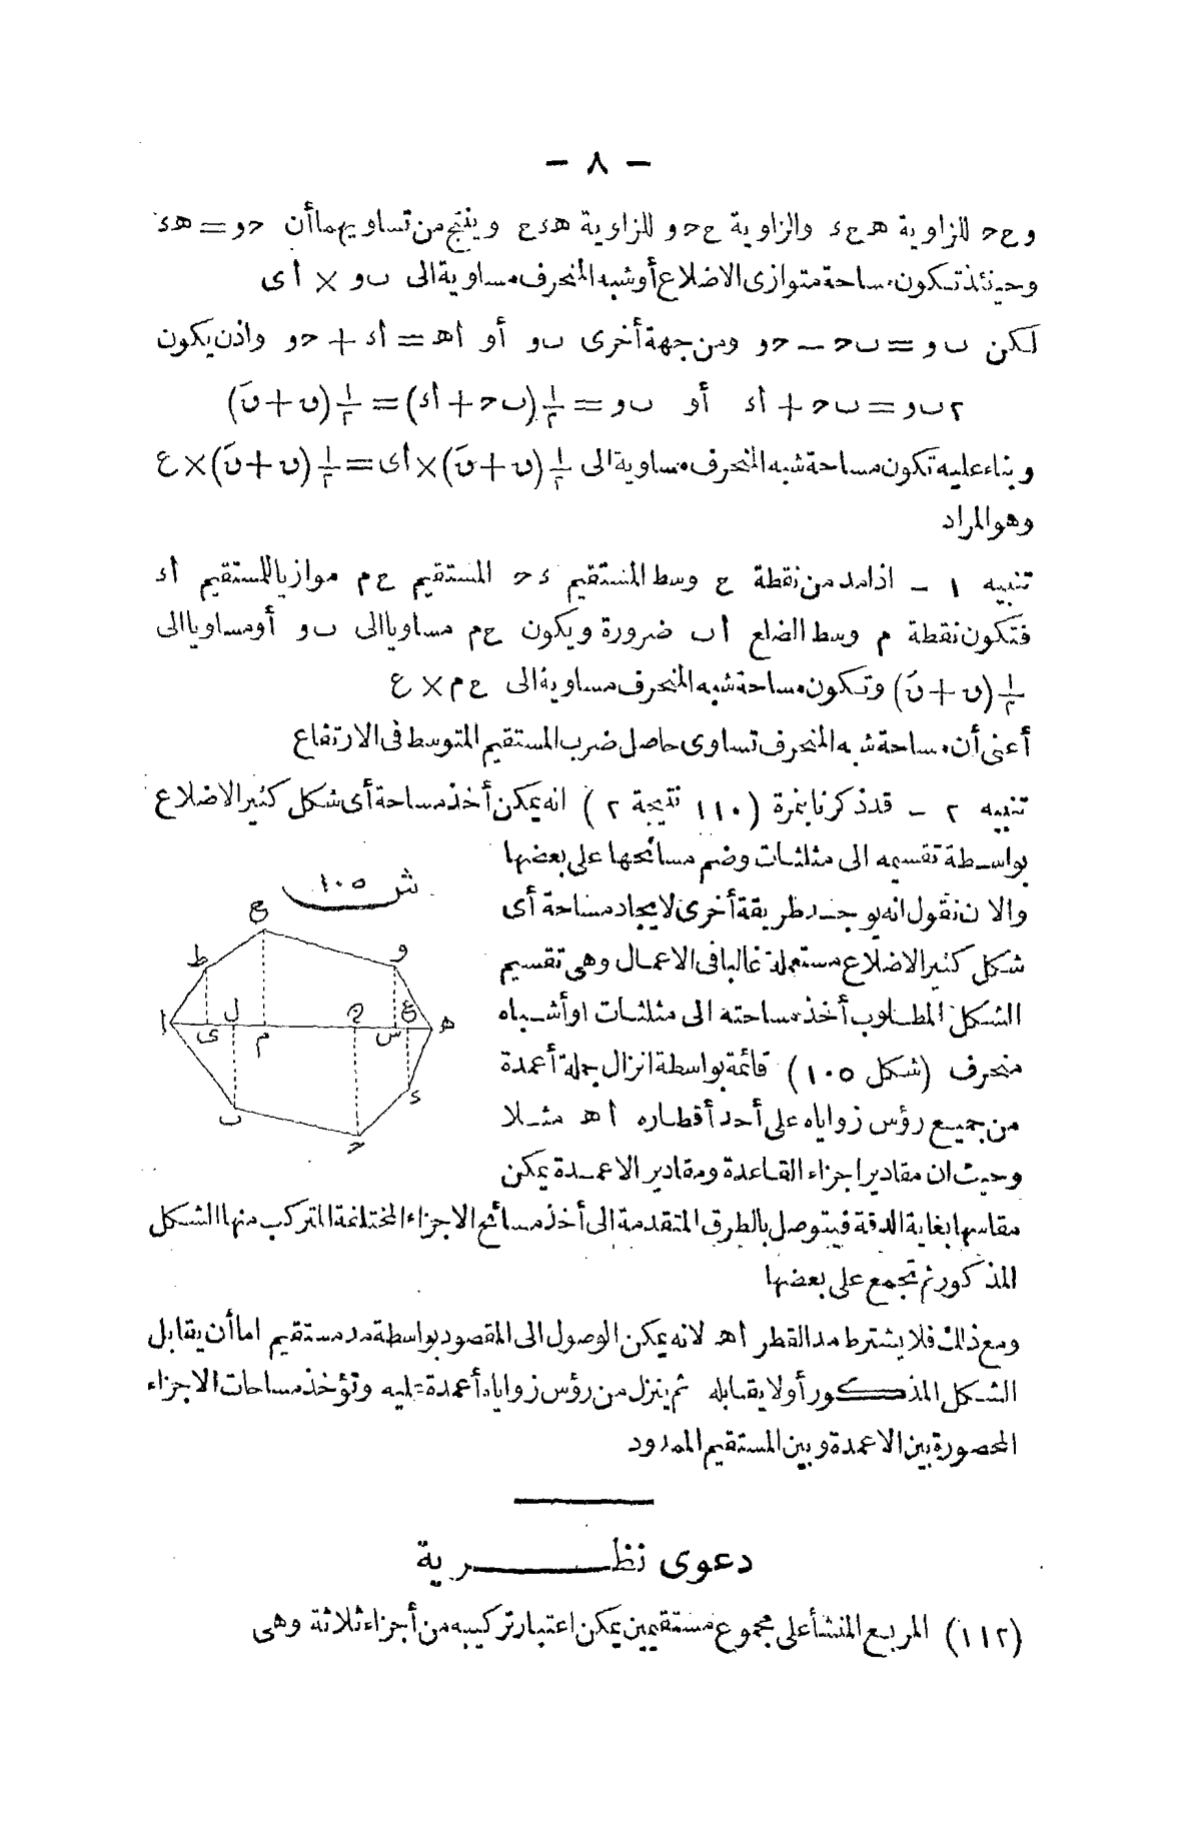 — ٨ —
وعح للزاوية هعء والزاوية عحو للزاوية هءع وينتج من تساويهما أن حو = هء
وحينئذ تكون مساحة متوازى الاضلاع أو شبه المنحرف مساوية الى ٮو × أى
لكن ٮو = ٮح — حو ومن جهة أخرى ٮو أو أهـ = أء + حو واذن يكون
٢ٮو = ٮح + أء أو ٮو = ١/٢ (ٮح + أء) = ١/٢ (ں + ںَ)
وبناء عليه تكون مساحة شبه المنحرف مساوية الى ١/٢ (ں + ںَ) × أى = ١/٢ (ں + ںَ) × ع
وهو المراد
تنبيه ١ — اذا مد من نقطة ع وسط المستقيم ءح المستقيم عم موازيا للمستقيم أء
فتكون نقطة م وسط الضلع أٮ ضرورة ويكون عم مساويا الى ٮو أو مساويا الى
١/٢ (ں + ںَ) وتكون مساحة شبه المنحرف مساوية الى عم × ع
أعنى أن مساحة شبه المنحرف تساوى حاصل ضرب المستقيم المتوسط فى الارتفاع
تنبيه ٢ — قد ذكرنا بنمرة (١١٠ نتيجة ٢) انه يمكن أخذ مساحة أى شكل كثير الاضلاع
بواسطة تقسيمه الى مثلثات وضم مسائحها على بعضها
والآن نقول انه يوجد طريقة أخرى لايجاد مساحة أى
شكل كثير الاضلاع مستعملة غالبا فى الاعمال وهى تقسيم
الشكل المطلوب أخذ مساحته الى مثلثات او أشباه
منحرف (شكل ١٠٥) قائمة بواسطة انزال جملة أعمدة
من جميع رؤس زواياه على أحد أقطاره أهـ مثلا
وحيث ان مقادير اجزاء القاعدة ومقادير الاعمدة يمكن
مقاسها بغاية الدقة فيتوصل بالطرق المتقدمة الى أخذ مسائح الاجزاء المختلفة المتركب منها الشكل
المذكور ثم تجمع على بعضها
ومع ذلك فلا يشترط مد القطر أهـ لانه يمكن الوصول الى المقصود بواسطة مد مستقيم اما أن يقابل
الشكل المذكور أو لا يقابله ثم ينزل من رؤس زواياه أعمدة عليه وتؤخذ مساحات الاجزاء
المحصورة بين الاعمدة وبين المستقيم الممدود
ش ١٠٥
ع
ط
و
ا
ى
ل
م
س
ع
هـ
ء
ٮ
ح
دعوى نظرية
(١١٢) المربع المنشأ على مجموع مستقيمين يمكن اعتبار تركيبه من أجزاء ثلاثة وهى